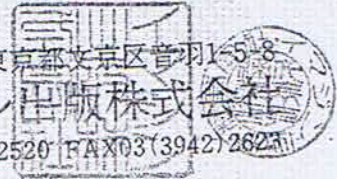 京都文京区音羽1-5-8
出版株式会社
2520 FAX03(3942)2623